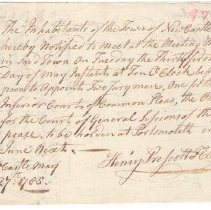 The Inhabitants of the Town of New Castle
hereby Notified to Meet at the Meeting
in Said Town on Tuesday the thirty first
Day of may Instant at Ten O'Clock
to Appoint Two Jury men, One for the
Inferior Court of Common Pleas, the O
for the Court of General Sessions of the
peace, to be holden at Portsmouth
June Next
Castle May
27th 1785
Henry Prescutt